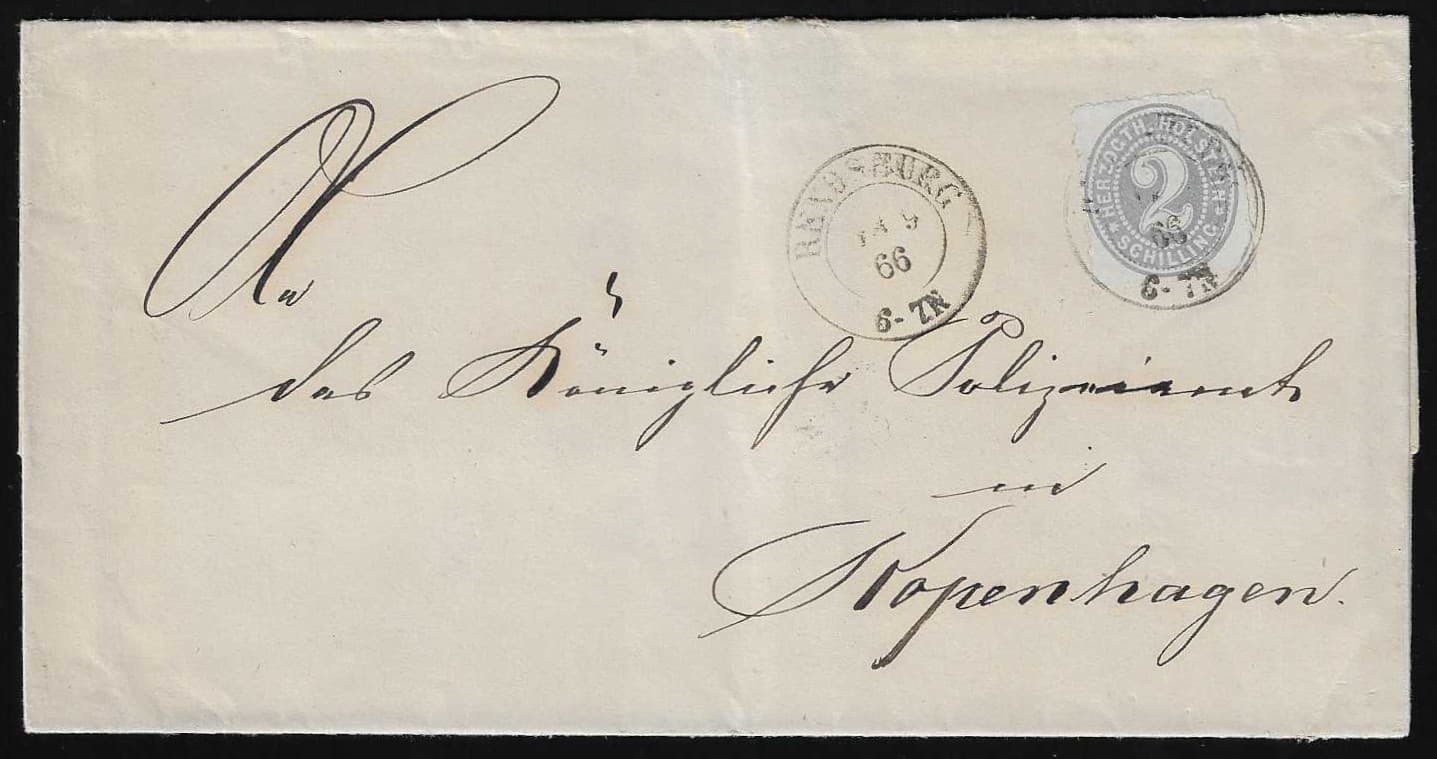 HERZOGTH. HOLSTEIN
2
SCHILLING
66
6-7N
RENDSBURG
9
66
6-7N
An
das Königliche Polizeiamt
in
Kopenhagen.